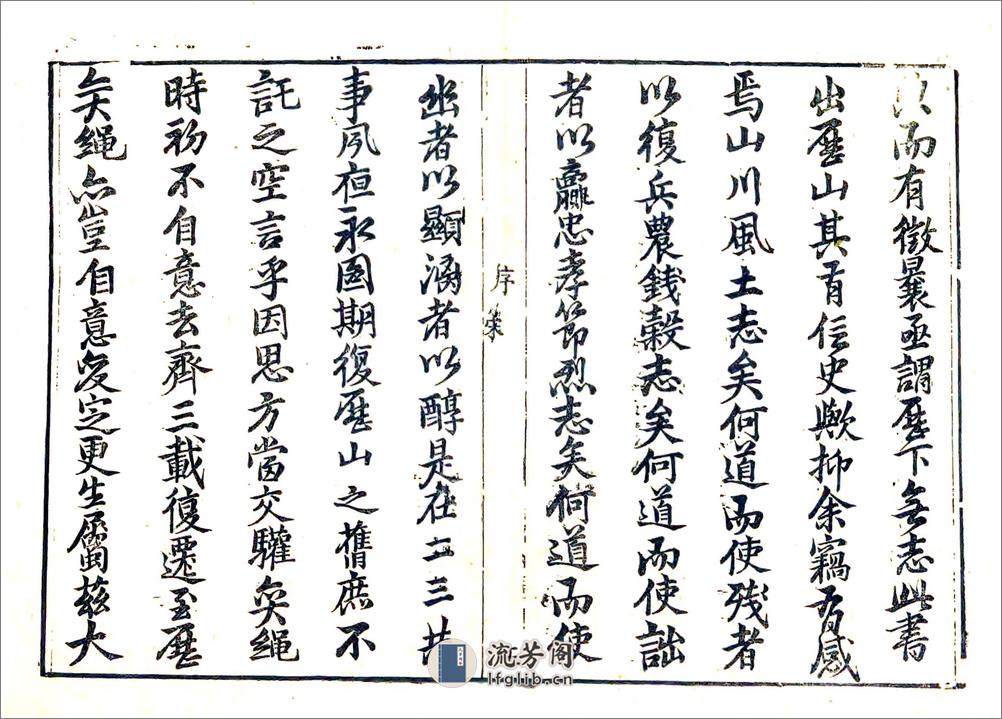 而有徵曩亟謂歷下無志此書
出歷山其有信史歟抑余竊有感
焉山川風土志矣何道而使殘者
以復兵農錢穀志矣何道而使詘
者以贏忠孝節烈志矣何道而使
序
幽者以顯漓者以醇是在二三共
事夙夜永圖期復歷山之舊庶不
託之空言乎因思方當交驩奐繩
時初不自意去齊三載復遷至歷
奐繩亦豈自意定更生屬茲大
流芳阁
lfglib.cn